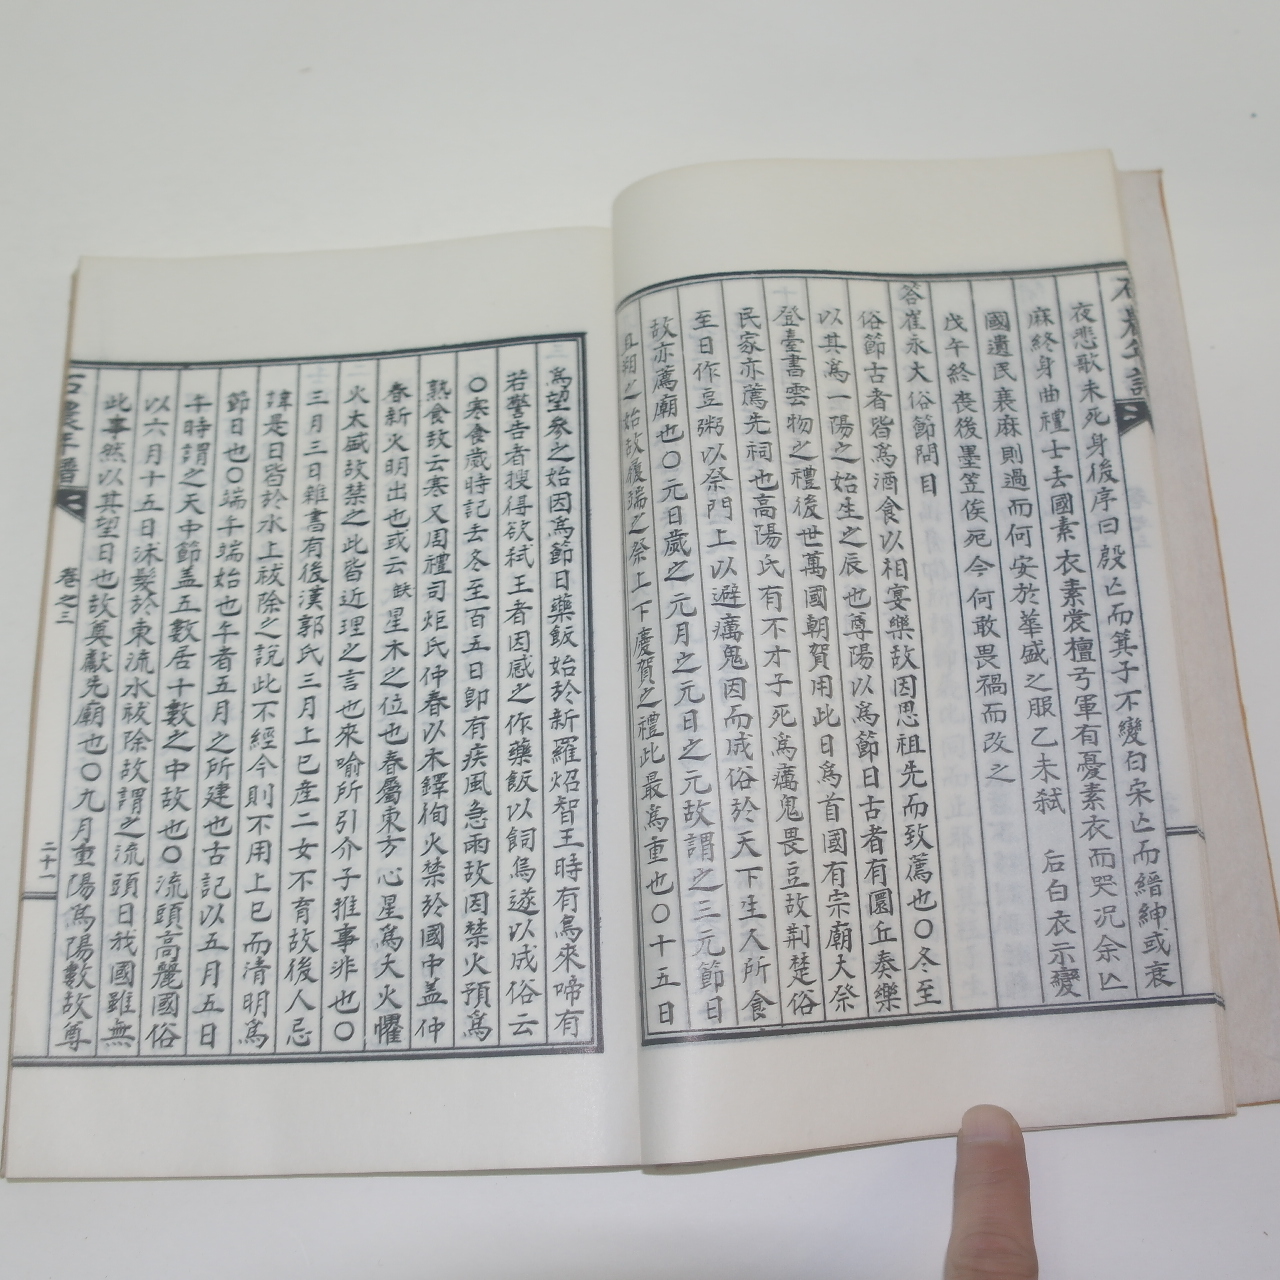 夜悲歌未死身後序曰殷亡而箕子不變白宋亡而縉紳或衰
麻終身曲禮士去國素衣素裳檀弓軍有憂素衣而哭况余亡
國遺民衰麻則過而何安於華盛之服乙未弑 后白衣示變
戊午終喪後墨笠俟死今何敢畏禍而改之
答崔永大俗節問目
俗節古者皆爲酒食以相宴樂故因思祖先而致薦也〇冬至
以其爲一陽之始生之辰也尊陽以爲節日古者有圜丘奏樂
登臺書雲物之禮後世萬國朝賀用此日爲首國有宗廟大祭
民家亦薦先祠也高陽氏有不才子死爲癘鬼畏豆故荆楚俗
至日作豆粥以祭門上以避癘鬼因而成俗於天下生人所食
故亦薦廟也〇元日歲之元月之元日之元故謂之三元節日
且朔之始故履端之祭上下慶賀之禮此最爲重也〇十五日
爲望參之始因爲節日藥飯始於新羅炤智王時有烏來啼有
若警告者搜得欲弑王者因感之作藥飯以飼烏遂以成俗云
〇寒食歲時記去冬至百五日卽有疾風急雨故因禁火預爲
熟食故云寒又周禮司烜氏仲春以木鐸徇火禁於國中盖仲
春新火明出也或云 星木之位也春屬東方心星爲大火懼
火太盛故禁之此皆近理之言也來喩所引介子推事非也〇
三月三日雜書有後漢郭氏三月上巳産二女不育故後人忌
諱是日皆於水上祓除之說此不經今則不用上巳而清明爲
節日也〇端午端始也午者五月之所建也古記以五月五日
午時謂之天中節盖五數居十數之中故也〇流頭高麗國俗
以六月十五日沐髮於東流水祓除故謂之流頭日我國雖無
此事然以其望日也故奠獻先廟也〇九月重陽爲陽數故尊
石農年譜 卷之三 二十一